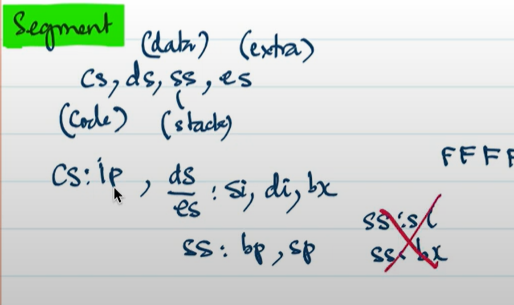 Segment
(data) (extra)
cs, ds, ss, es
(code) (stack)
cs:ip, ds/es : si, di, bx
FFFF
ss : bp, sp
ss:si
ss:bx